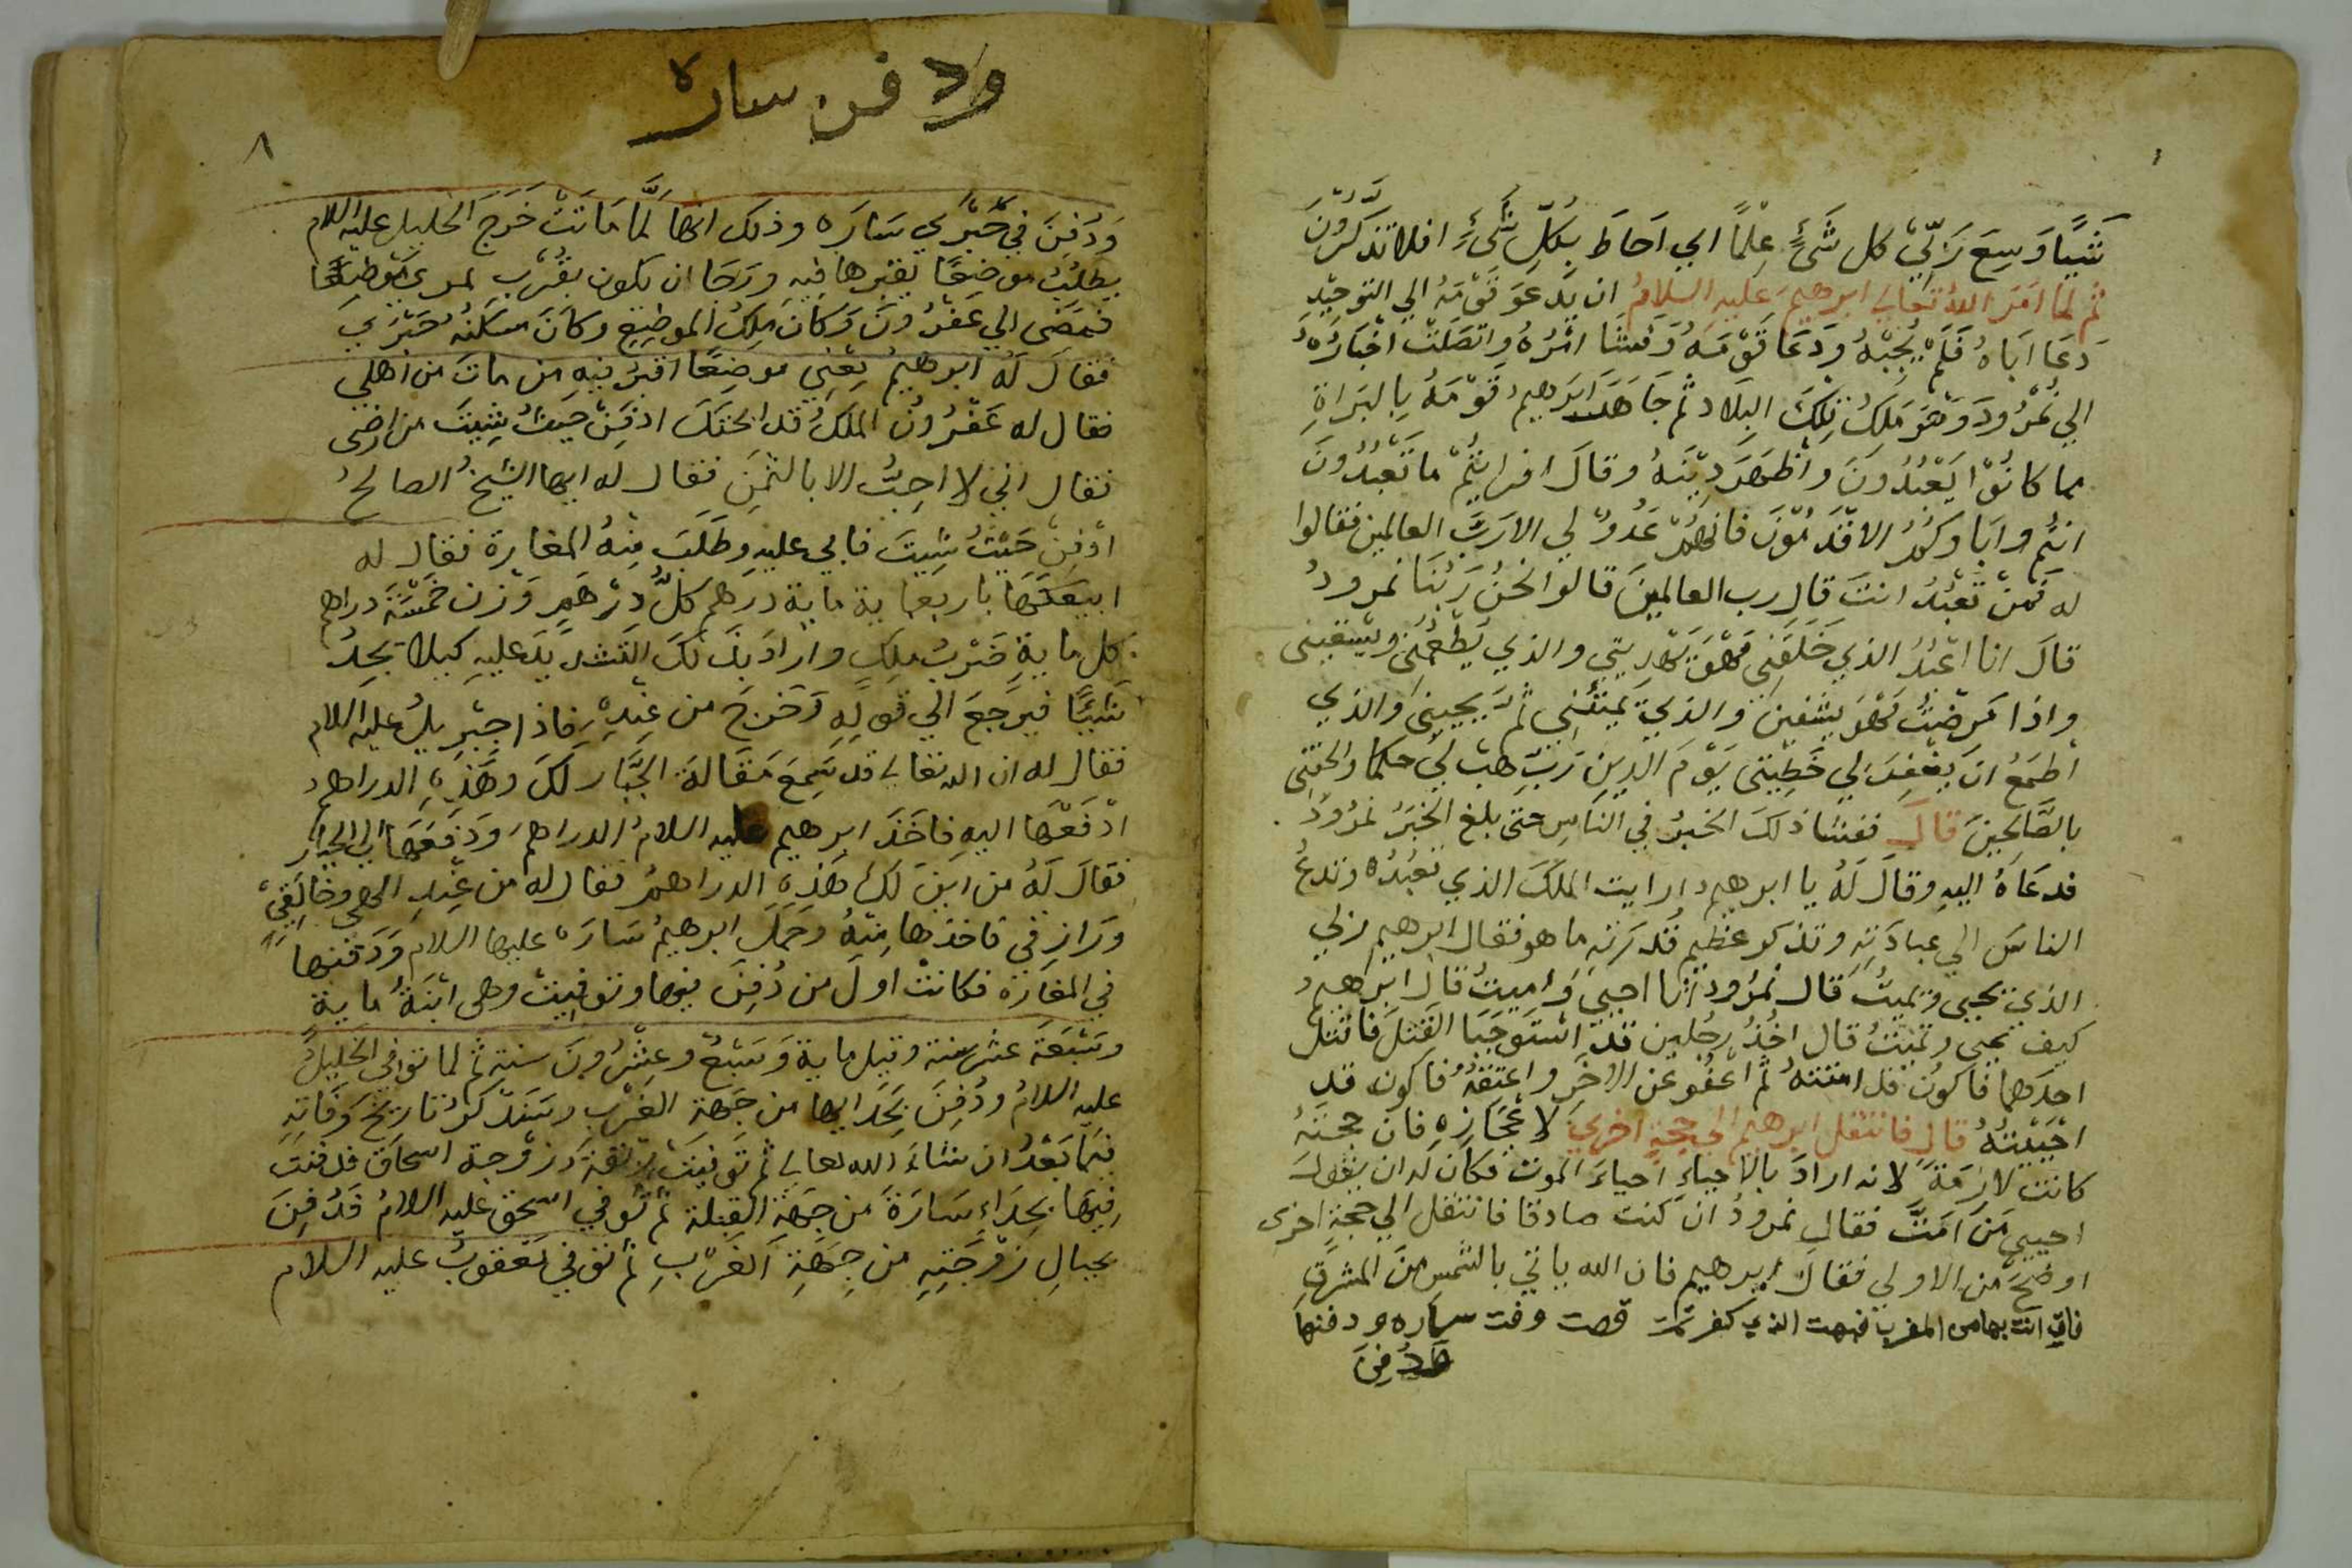 شَيًّا وَسِعَ رَبِّيْ كل شَئٍ عِلْمًا اي اَحَاطَ بِكُلِّ شَئٍ افلا تتذَكَّرُوْنَ
ثم لمَّا امَرَ اللهُ تعالي ابرهيمَ عليه السلامُ ان يَّدْعوَ قَوْمَهُ الي التوحِيْدِ
دَعَا اَبَاهُ فَلَمْ يُجِبْهُ وَدَعَا قَوْمَهُ وَفَشَا امْرُهُ واتصَلَتْ اخْبَارُهُ
الي نُمْرُودَ وَهُوَ مَلَكُ تِلْكَ البِلَاد ثم جَاهَدَ ابرَهيمُ قَوْمَهُ بِالبَرَاةِ
مما كانُوْا يَعْبُدُونَ واَظْهَرَ دِيْنَهُ وقالَ افرايْتُمْ مَا تَعْبُدُوْنَ
انتُم وابَاوكُمُ الاقْدَمُوْنَ فانهُمْ عَدُوٌّ لي الا رَبَّ العالمين فقالوا
له فَمَنْ تَعْبُدُ انتَ قال رب العالمِيْنَ قالوا نحْنُ رَبُّنَا نمرودُ
قالَ انا اعْبُدُ الذي خَلَقَنِي فَهُوَ يَهْدِيْنِي والذي يُطْعِمُنِي وَيَسْقِيْنِي
واذا مَرِضْتُ فَهُوَ يشْفِين والذِي يُمِيْتُنِي ثم يُحْيِيْنِي والذِي
اطمَعُ انْ يغْفِرَ لي خَطِيْئَتِي يَوْمَ الدِيْنِ رَبِّ هَبْ لي حكما والحِقْنِي
بالصَّالحِيْنَ قالَ ففشا ذلكَ الخَبرُ في الناسِ حتى بلغ الخَبَرُ نمْرُوْدَ
فدعَاهُ اليهِ وقالَ لَهُ يا ابرهيم ارايت الملَكَ الذي تَعْبُدُهُ وتدعُ
الناسَ الي عبادَتِهِ وتذكر عظيم قُدْرَتِهِ ما هو فقال ابرهيم ربي
الذي يُحْيِي ويُمِيتُ قال نمْرُود انا احيي وَاُمِيتُ قال ابرَهيمُ
كيف تحيي وتُمِيْتُ قال اخُذُ رجُلين قد اسْتَوجَبَا القَتْلَ فاقْتل
احدَهما فاكونُ قد امتتهُ ثم اعْفُو عن الاخَر واعتِقُهُ فاكون قد
احْيَيْتُهُ قال فانتقل ابرهيم الي حجةٍ اخري لا عَجْزًا فان حجتَهُ
كانت لازمَةً لانه ارادَ بالاحياءِ احياءَ الموتى فكان له ان يقولَ
احيي مَن اَمَتَّ فقالِ نمرودُ انْ كنت صادقا فانتقل الي حجةٍ اخرى
اوضحَ من الاولي فقالَ ابرهيم فان الله ياتي بالشمسِ مِنَ المشرِقِ
فات بها من المغرب فبهت الذي كفر تمت قصت وفت ساره ودفنها
وَدُفِنَ
ودفن ساره
٨
وَدُفِنَ في حَبْرَي سَارَه وذلك انها لَمَّا مَاتَتْ خَرَجَ الخليل عليه السلام
يطلُبُ موضِعًا يقبرها فيه ورَجَا ان يكون بقُرْبِ ممرى
فمَضَى الي عَفْرُونَ وَكَانَ مَلِكُ الموضِعِ وكَانَ مَسكَنُهُ حَبْرَي
فقالَ لَهُ ابرهيمُ بِعْنِي موضِعًا اقبُرُ فيهِ من مات من اهلي
فقال له عَفْرُونُ الملكُ قد ابحتكَ ادفِنْ حيثُ شِيتَ من ارضى
فقال اني لا احِبُّ الا بالثَّمَنِ فقال له ايها الشَيخُ الصالحُ
ادْفِنْ حَيْثُ شِيتَ فابي عليه وطلَبَ مِنْهُ المغارة فقال له
ابيعكَهَا باربعماية ماية درهم كلُّ دِرْهَمٍ وَزن خَمْسَة دراهم
كل مايةِ ضَرْبُ مِلكٍ وارادَ بذَلكَ التشدِيْدَ عليهِ كيلا يجدُ
شَيًّا فيرجعَ الي قولِهِ وَخَرَجَ من عِنْدِهِ فاذا جِبْرِيلُ عليه السلام
فقال له ان الله تعالي قد سَمِعَ مَقَالةَ الجَبَّارِ لكَ وهَذِهِ الدراهِمُ
ادْفَعْهَا اليهِ فاخَذَ ابرهيم عليه السلامُ الدراهمَ وَدَفَعَهَا الي الجبار
فقالَ لَهُ من ايْنَ لكَ هَذِهِ الدراهِمُ فقال له من عِنْدِ الهي وخَالِقِيْ
ورازِقي فاخذها مِنْهُ وحَمَلَ ابرهيمُ سَارَه عليها السلام وَدَفنها
في المغَارَة فكانتْ اولَ من دُفِنَ فيها وتوفِيتْ وهي ابْنَةُ ماية
وسَبْعَةَ عشر سنة وقيل ماية وَسَبْعٌ وعِشْرُونَ سنة ثم لما توفي الخَليلُ
عليه السلامُ ودُفِنَ بحذايها من جَهة الغرْب وسَنذكرُ تاريخَ وَفَاتِهِ
فيما بَعْدُ ان شَاءَ الله تعالي ثم تَوفيَتْ رِبْقَة زَوْجة اسحَاقَ فدفنَتْ
فيْهَا بحِذَاءِ سَارَةَ من جِهَةِ القبلة ثم تُوفي اسحق عليه السلامُ فَدُفِنَ
بحيالِ زَوْجَتِهِ من جِهَةِ الغَرْبِ ثم توفي يَعْقوبُ عليه السلام